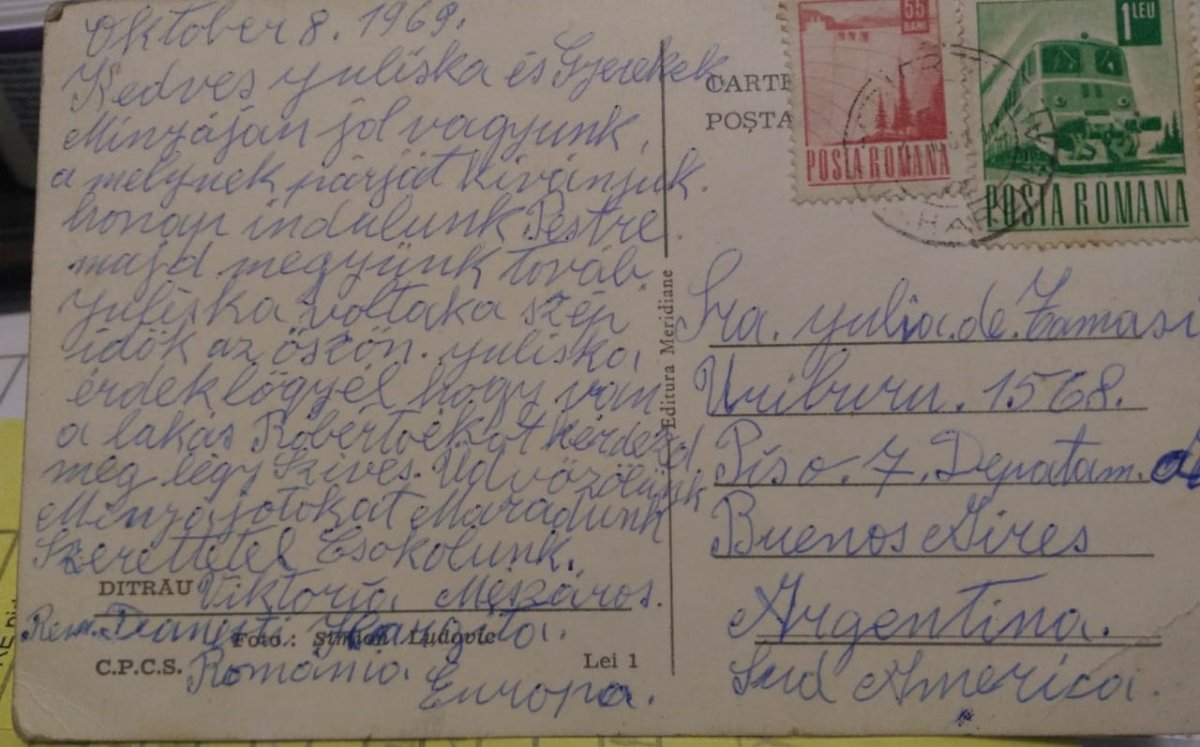 Oktober 8. 1969.
Kedves yuliska és Gyerekek
Minyáján jól vagyunk,
a melynek párját kivánjuk.
honap indulunk Pestre.
majd megyünk továb.
yuliska voltaka szép
idők az őszön. yuliska
érdeklőgyél hogy van
a lakás Robertoékot kérdezd
meg légy szives. Üdvözölünk
Minyájotokat Maradunk
Szerettetel Csokolunk.
DITRĂU Viktoria Mészáros.
Rem.
Foto.: Ludovic
C.P.C.S. Romania. Lei 1
Europa.
Editura Meridiane
CARTE
POȘTA
55 BANI
POSTA ROMANA
1 LEU
POSTA ROMANA
Sra. yulia.de.Tamasi
Uriburu. 1568.
Piso. 7. Depatam.
Buenos Aires
Argentina.
Sud America.